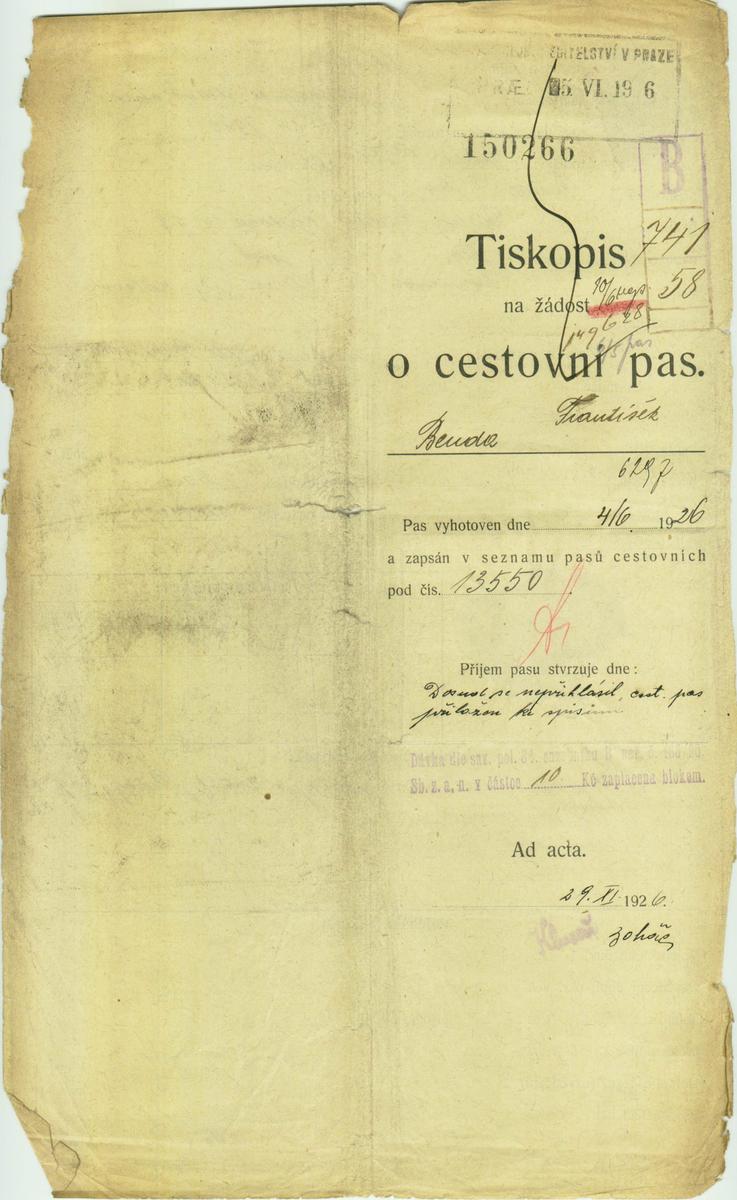 ŘITELSTVÍ V PRAZE
5. VI. 19 6
150266
B
Tiskopis 741
na žádost 58
o cestovní pas.
František
Benda
6297
Pas vyhotoven dne 4/6 1926
a zapsán v seznamu pasů cestovních
pod čís. 13550.
Příjem pasu stvrzuje dne:
Dosud se nepřihlásil, cest. pas
přiložen ke spisům
Dávka dle saz. pol.
Sb. z. a. n. v částce 10 Kč zaplacena blokem.
Ad acta.
29. XI. 1926.